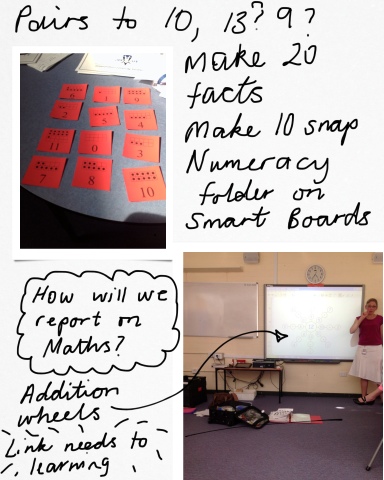 Pairs to 10, 13? 9?
Make 20
facts
Make 10 snap
Numeracy
folder on
Smart Boards
6 1 9
2 5 4
11 0 3
7 8 10
How will we
report on
Maths?
Addition
wheels
Link needs to
learning